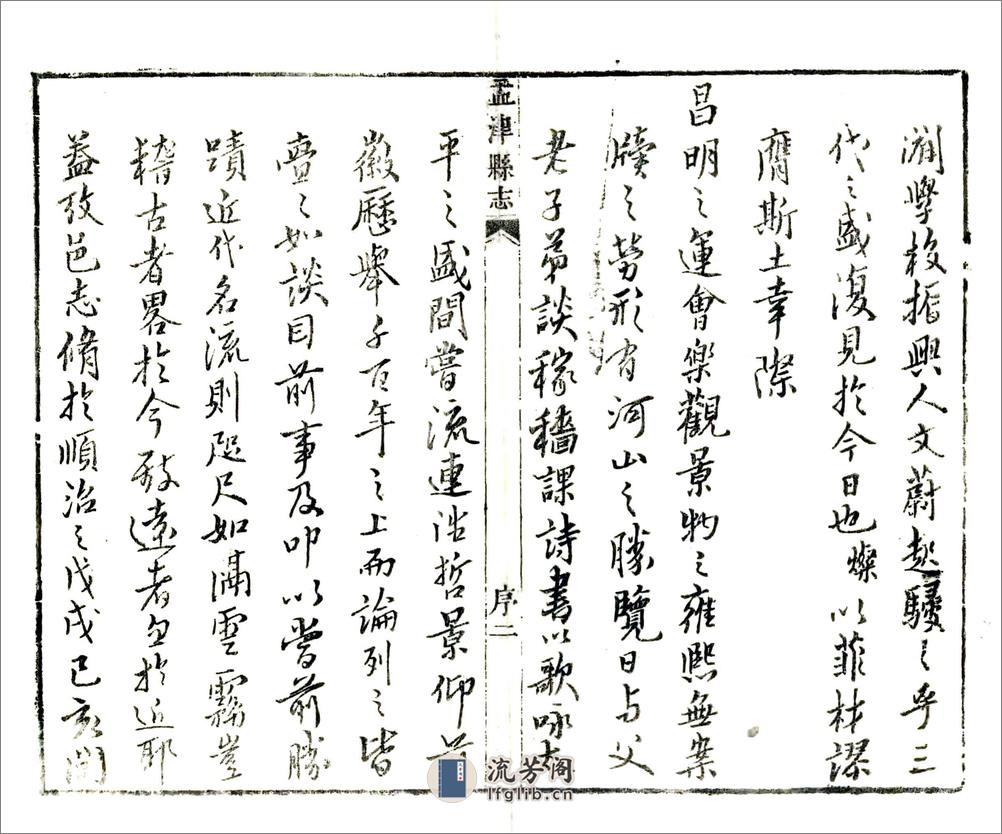 澗學校振興人文蔚起駸〻乎三
代之盛復見於今日也燦以菲材謬
膺斯土幸際
昌明之運會樂觀景物之雍熙無案
牘之勞形有河山之勝覽日与父
老子弟談稼穡課詩書以歌咏太
平之盛間嘗流連浩哲景仰前
徽歷舉千百年之上而論列之皆
亹〻如談目前事及叩以當前勝
蹟近代名流則咫尺如隔雲霧豈
稽古者畧於今致遠者忽於近耶
葢攷邑志脩於順治之戊戌己亥間
孟津縣志
序二
流芳阁
lfglib.cn